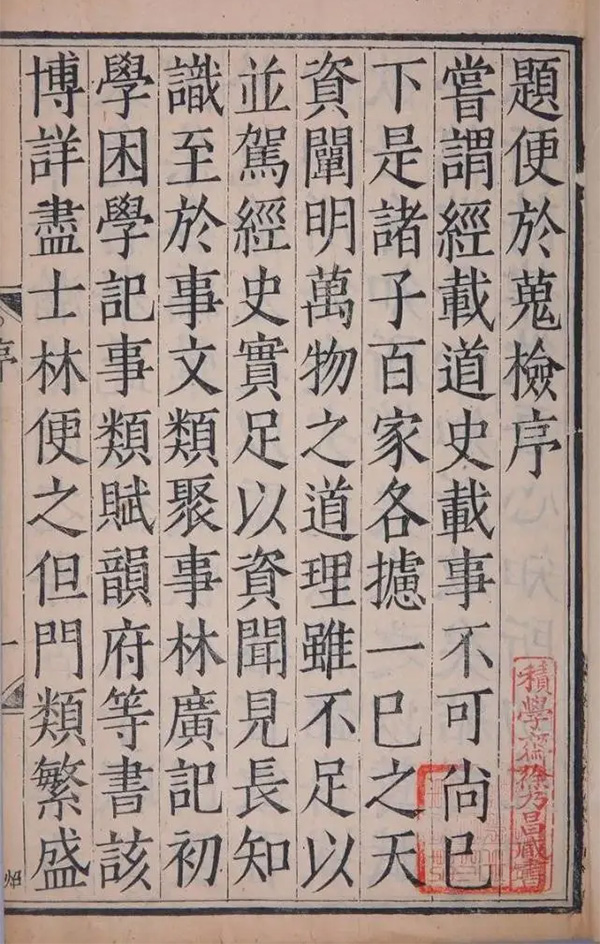 題便於蒐檢序
嘗謂經載道史載事不可尚已
下是諸子百家各攄一已之天
資闡明萬物之道理雖不足以
並駕經史實足以資聞見長知
識至於事文類聚事林廣記初
學困學記事類賦韻府等書該
博詳盡士林便之但門類繁盛
序
一
積學齋徐乃昌藏書